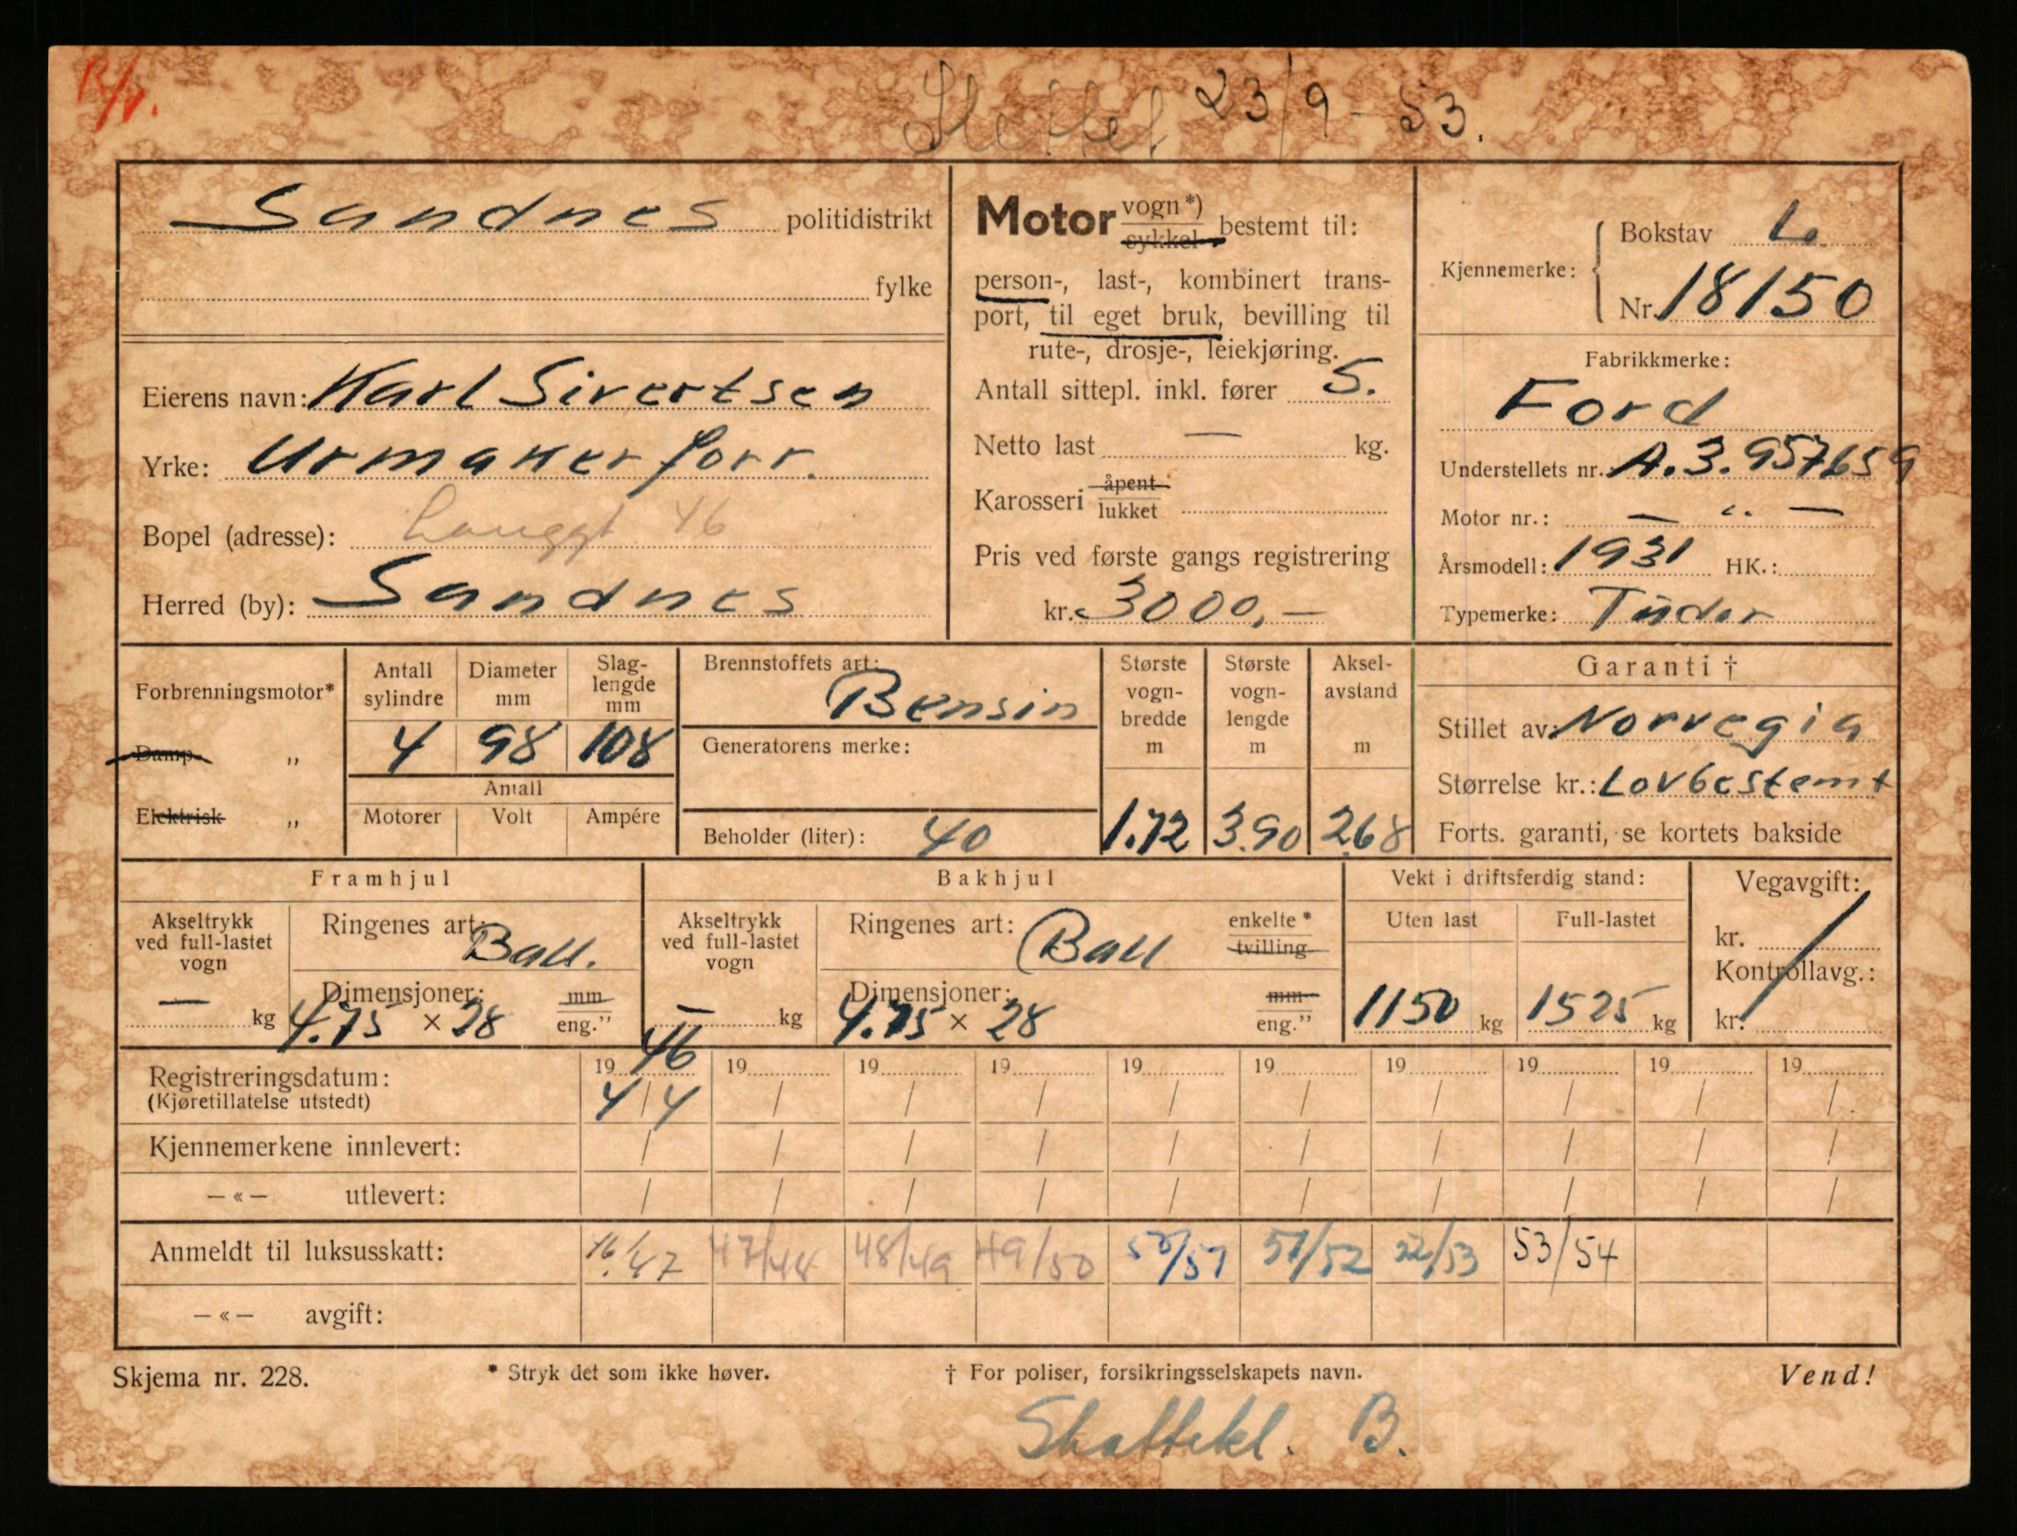 R/V.
Slettet 23/9 - 53.
Sandnes politidistrikt
fylke
Eierens navn: Karl Sivertsen
Yrke: Urmakerforr.
Bopel (adresse): Langgt 46
Herred (by): Sandnes
Motor vogn*) sykkel bestemt til:
person-, last-, kombinert trans-
port, til eget bruk, bevilling til
rute-, drosje-, leiekjøring.
Antall sittepl. inkl. fører 5.
Netto last — kg.
Karosseri åpent lukket
Pris ved første gangs registrering
kr. 3000,—
Kjennemerke: Bokstav L.
Nr. 18150
Fabrikkmerke:
Ford
Understellets nr. A.3.957659
Motor nr.: — „ —
Årsmodell: 1931 HK.:
Typemerke: Tudor
Forbrenningsmotor*
Damp- „
Elektrisk „
Antall sylindre Diameter mm Slag-lengde mm
4 98 108
Antall
Motorer Volt Ampére
Brennstoffets art: Bensin
Generatorens merke:
Beholder (liter): 40
Største vogn-bredde m 1.72
Største vogn-lengde m 3.90
Aksel-avstand m 2.68
Garanti †
Stillet av: Norvegia
Størrelse kr.: Lovbestemt
Forts. garanti, se kortets bakside
Framhjul
Akseltrykk ved full-lastet vogn — kg
Ringenes art: Ball.
Dimensjoner: 4.75 × 28 mm eng.”
Bakhjul
Akseltrykk ved full-lastet vogn — kg
Ringenes art: Ball enkelte* tvilling
Dimensjoner: 4.75 × 28 mm eng.”
Vekt i driftsferdig stand:
Uten last Full-lastet
1150 kg 1525 kg
Vegavgift:
kr.
Kontrollavg.:
kr.
Registreringsdatum: 1946 19 19 19 19 19 19 19 19 19
(Kjøretillatelse utstedt) 4/4 / / / / / / / / /
Kjennemerkene innlevert: / / / / / / / / / /
—«— utlevert: / / / / / / / / / /
Anmeldt til luksusskatt: 46/47 47/48 48/49 49/50 50/51 51/52 52/53 53/54
—«— avgift:
Skjema nr. 228. * Stryk det som ikke høver. † For poliser, forsikringsselskapets navn. Vend!
Skattekl. B.